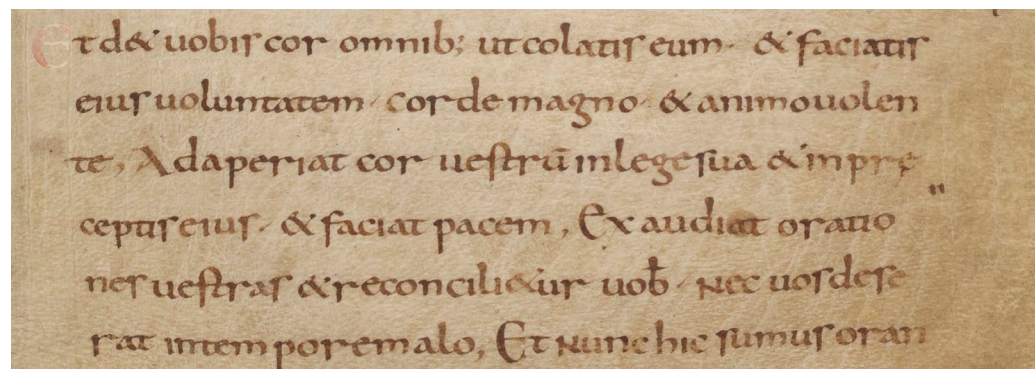 Et d& uobis cor omnib; ut colatis eum· & faciatis
eius uoluntatem· corde magno· & animo uolen
te, Adaperiat cor uestrū in lege sua & in prę
ceptis eius· & faciat pacem, Exaudiat oratio
nes uestras & reconcili&ur uob̄· nec uos dese
rat in tempore malo, Et nunc hic sumus oran